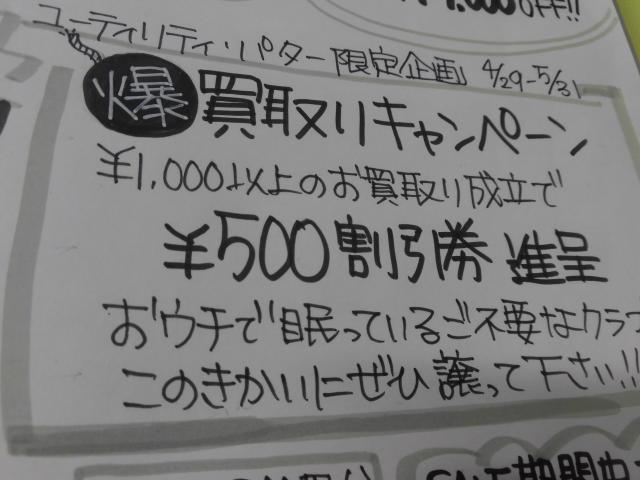 1,000OFF!!
ユーティリティ・パター限定企画 4/29-5/31
爆買取りキャンペーン
¥1,000以上のお買取り成立で
¥500割引券 進呈
おウチで眠っているご不要なクラブ
このきかいにぜひ譲って下さい!!
期間中